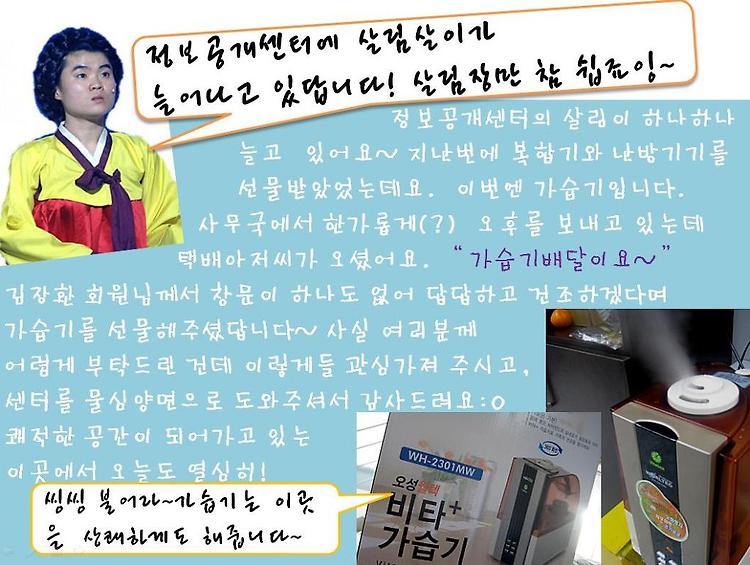 정보공개센터에 살림살이가
늘어나고 있답니다! 살림장만 참 쉽죠잉~
정보공개센터의 살림이 하나하나
늘고 있어요~ 지난번에 복합기와 난방기기를
선물받았었는데요. 이번엔 가습기입니다.
사무국에서 한가롭게(?) 오후를 보내고 있는데
택배아저씨가 오셨어요. “가습기배달이요~”
김장환 회원님께서 창문이 하나도 없어 답답하고 건조하겠다며
가습기를 선물해주셨답니다~ 사실 여러분께
어렵게 부탁드린 건데 이렇게들 관심가져 주시고,
센터를 물심양면으로 도와주셔서 감사드려요:o
쾌적한 공간이 되어가고 있는
이곳에서 오늘도 열심히!
씽씽 불어라~가습기는 이곳
을 상쾌하게도 해줍니다~
WH-2301MW
오성
비타+
가습기